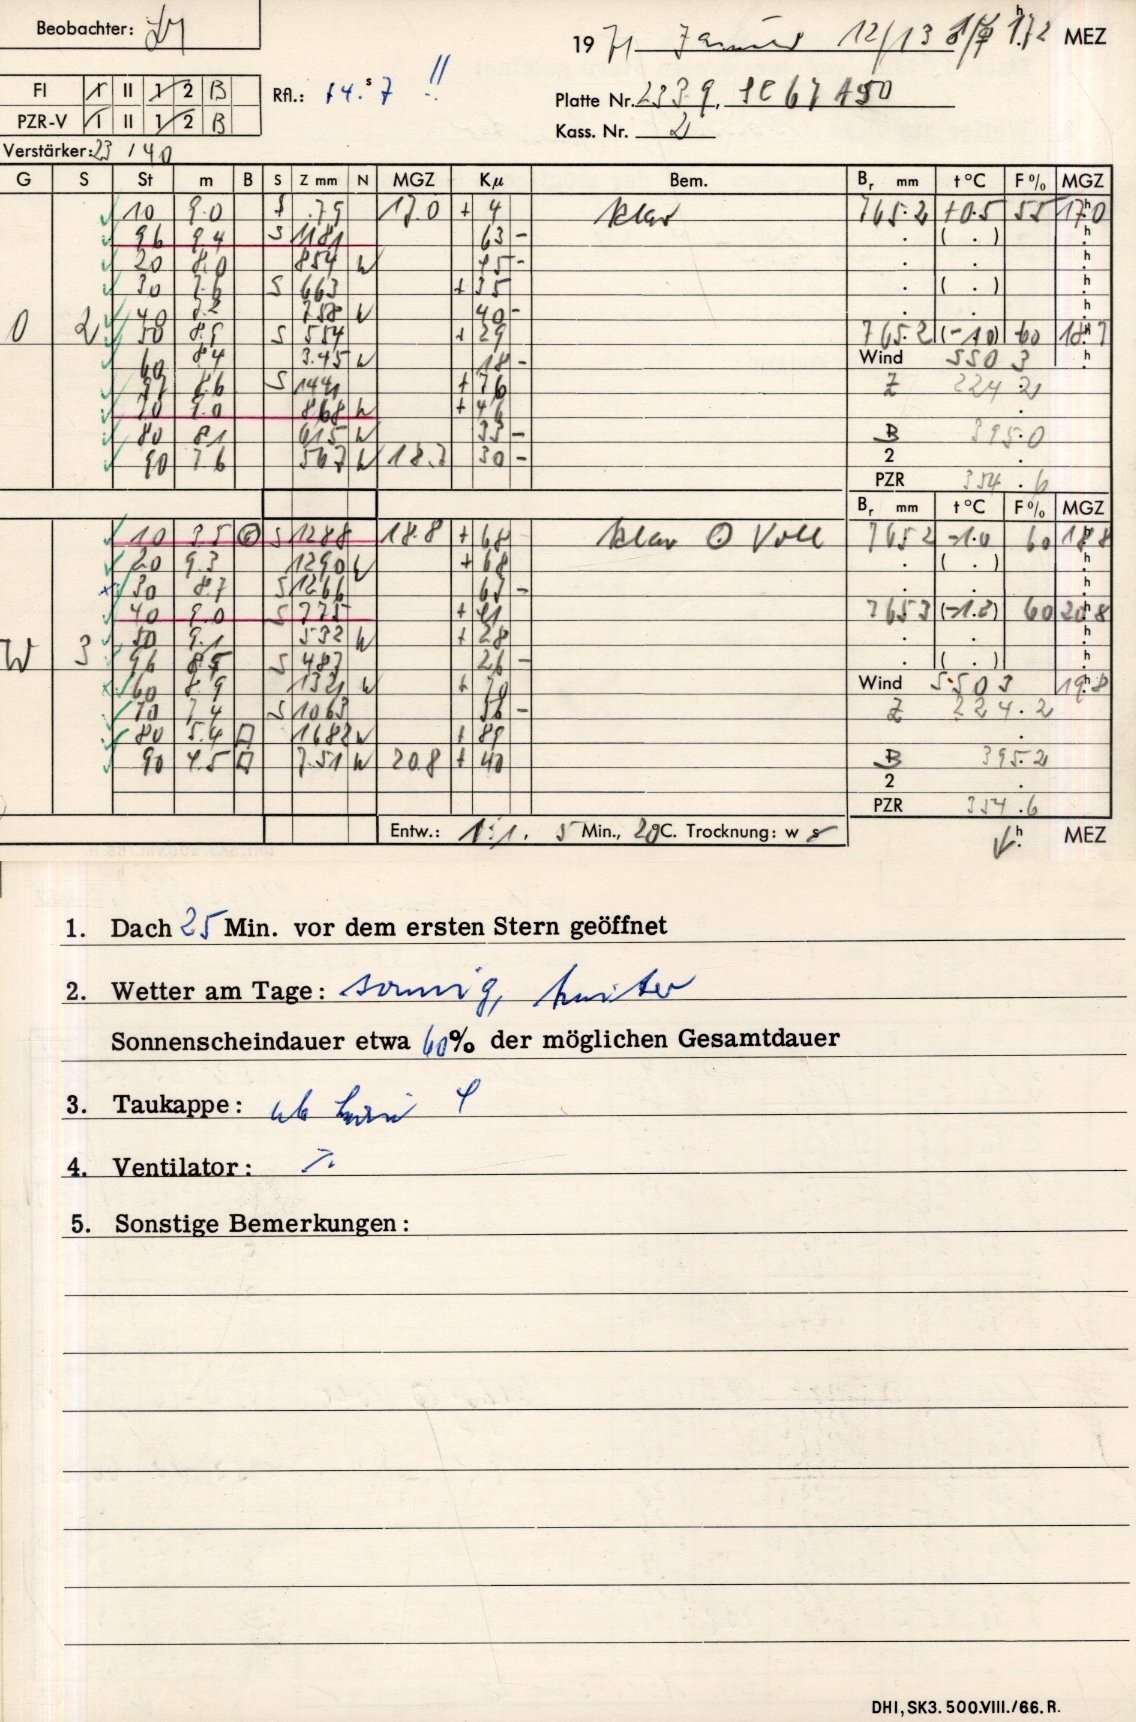 Beobachter:
19 71 Januar 12/13 MEZ
FI I II 1 2 B
Rfl.: 14.s7 !!
Platte Nr. 2339,
PZR-V I II 1 2 B
Kass. Nr. 2
Verstärker: 23 / 40
G S St m B S Z mm N MGZ Kμ Bem. Br mm t°C F% MGZ
10 9.0 .79 17.0 + 4 klar 765.2 +0.5 55 17.h0
96 9.4 S 1181 63 - . ( . ) h
20 8.0 854 W 45 - . . h
30 7.6 S 663 + 35 . ( . ) h
40 7.2 758 W 40 - . . h
0 2 50 8.5 S 554 + 29 765.2 (-1.0) 60 18.h7
60 8.4 3.45 W 18 - Wind SSO 3 h
97 8.6 S 1441 + 76 Z 224.2
70 9.0 868 W + 46
80 8.1 615 W 33 - B 395.0
90 7.6 567 W 18.7 30 - 2 .
PZR 354.6
Br mm t°C F% MGZ
10 3.5 S 1288 18.8 + 68 klar Voll 765.2 -1.0 60 18.8
20 9.3 1290 W + 68 . ( . ) h
30 8.7 S 1266 67 - . . h
40 9.0 S 775 + 41 765.3 (-1.2) 60 20.8
50 9.1 532 W + 28 . . h
W 3 96 8.5 S 483 26 - . ( . ) h
60 8.9 1321 W + 70 Wind SSO 3 19.h8
70 7.4 S 1063 56 - Z 224.2
80 5.4 1682 W + 89
90 4.5 7.51 W 20.8 + 40 B 395.2
2 .
PZR 354.6
Entw.: 1:1. 5 Min., 20C. Trocknung: w s h MEZ
1. Dach 25 Min. vor dem ersten Stern geöffnet
2. Wetter am Tage: sonnig, heiter
Sonnenscheindauer etwa 60% der möglichen Gesamtdauer
3. Taukappe:
4. Ventilator:
5. Sonstige Bemerkungen:
DHI, SK3. 500.VIII./66. R.